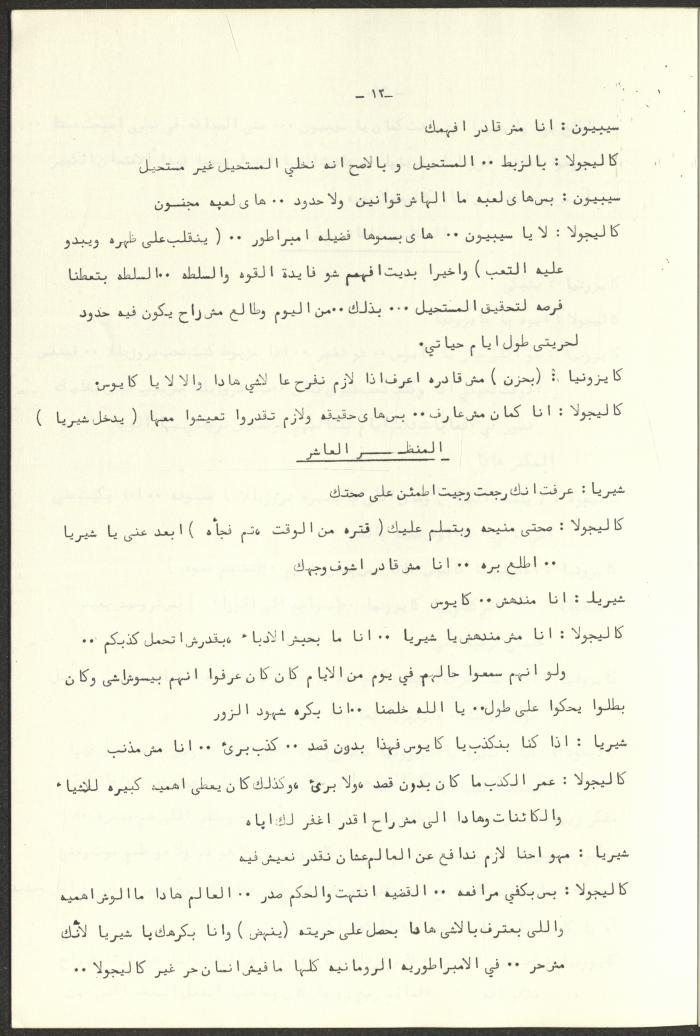 ـ ١٢ ـ
سيبيون : انا مش قادر افهمك
كاليجولا : بالزبط ٠٠ المستحيل و بالاصح انه نخلي المستحيل غير مستحيل
سيبيون : بس هاى لعبه ما الهاش قوانين ولا حدود ٠٠ هاى لعبه مجنـــون
كاليجولا : لا يا سيبيون ٠٠ هاى بسموها فضيله امبراطور ٠٠ ( ينقلب على ظهره ويبدو
عليه التعب ) واخيرا بديت افهم شو فايدة القوه والسلطه ٠٠ السلطه بتعطنا
فرصه لتحقيق المستحيل ٠٠٠ بذلك ٠٠ من اليوم وطالع مش راح يكون فيه حدود
لحريتي طول ايام حياتي٠
كايزونيا : (بحزن ) مش قادره اعرف اذا لازم نفرح عا لاشي هادا والا لا يا كايوس٠
كاليجولا : انا كمان مش عارف ٠٠ بس هاى حقيقه ولازم تقدروا تعيشوا معها ( يدخل شيريا )
المنظـــــر العاشر
شيريا : عرفت انك رجعت وجيت اطمئن على صحتك
كاليجولا : صحتى منيحه وبتسلم عليك ( فتره من الوقت ،ثم نجأه ) ابعد عنى يا شيريا
٠٠ اطلع بره ٠٠ انا مش قادر اشوف وجهك
شيريا : انا مندهش ٠٠ كايوس
كاليجولا : انا مش مندهش يا شيريا ٠٠ انا ما بحبش الادباء ،بقدرش اتحمل كذبكم ٠٠
ولو انهم سمعوا حالهم في يوم من الايام كان كان عرفوا انهم بيسوش اشى وكان
بطلوا يحكوا على طول ٠٠ يا الله خلصنا ٠٠ انا بكره شهود الزور
شيريا : اذا كنا بنكذب يا كايوس فهذا بدون قصد ٠٠ كذب برئ ٠٠ انا مش مذنب
كاليجولا : عمر الكذب ما كان بدون قصد ،ولا برئ ،وكذلك كان يعطى اهميه كبيره للاشياء
والكائنات وهادا الى مش راح اقدر اغفر لك اياه
شيريا : مهو احنا لازم ندافع عن العالم عشان نقدر نعيش فيه
كاليجولا : بس بكفي مرافعه ٠٠ القضيه انتهت والحكم صدر ٠٠ العالم هادا ما الوش اهميه
واللى بعترف بالاشى هادا بحصل على حريته (ينهض ) وانا بكرهك يا شيريا لأنك
مش حر ٠٠ في الامبراطوريه الرومانيه كلها ما فيش انسان حر غير كاليجولا ٠٠